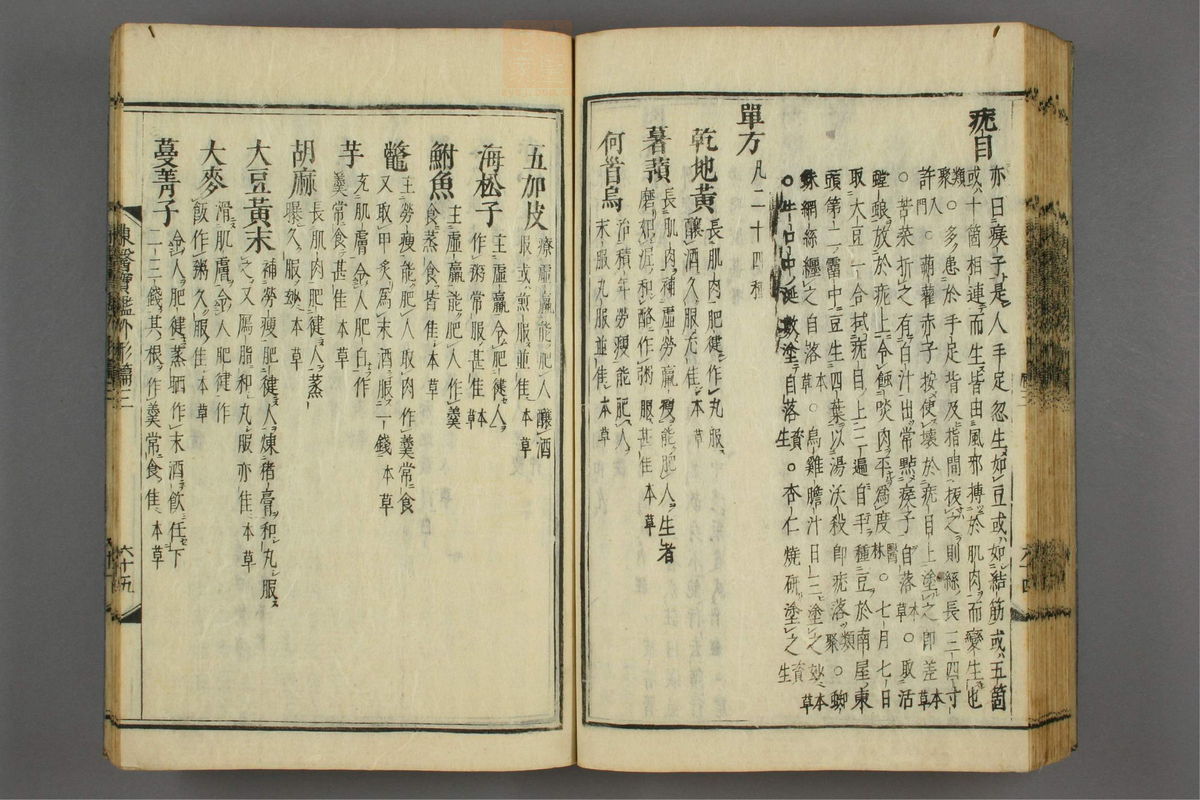 疣目
亦曰瘊子是人手足忽生如豆或如結筋或五箇
或十箇相連而生皆由風邪搏於肌肉而變生也
類聚○多患於手足背及指間扳之則絲長三四寸
許入門○蒴藋赤子按使壞於疣目上塗之卽差本草
○苦菜折之有白汁出常點瘊子自落本草○取活
螳蜋放於疣上令蝕啖肉平爲度醫林○七月七日
取大豆一合拭疣目上三遍自手種豆於南屋東
頭第二霤中豆生四葉以湯沃殺卽疣落類聚○蜘
蛛網絲纏之自落本草○烏雞膽汁日三塗之妙本草
○牛口中涎數塗自落資生○杏仁燒研塗之資生
單方
凡二十四種
乾地黃
長肌肉肥健作丸服
釀酒久服尤佳本草
薯蕷
長肌肉補勞羸瘦能肥人生者
磨如泥和酪作粥服甚佳本草
何首烏
治積年勞瘦能肥人
末服丸服並佳本草
五加皮
療虛羸能肥人釀酒
服或煎服並佳本草
海松子
主虛羸令肥健人
作粥常服甚佳本草
鮒魚
主虛羸能肥人作羹
食蒸食皆佳本草
鼈
主勞瘦能肥人取肉作羹常食
又取甲炙爲末酒服一錢本草
芋
充肌膚令人肥白作
羹常食甚佳本草
胡麻
長肌肉肥健人蒸
曝久服妙本草
大豆黃末
補勞瘦肥健人煉猪膏和丸服
之又鴈脂和丸服亦佳本草
大麥
滑肌膚令人肥健作
飯作粥久服佳本草
蔓菁子
令人肥健蒸晒作末酒飮任下
二三錢其根作羹常食佳本草
東醫寶鑑外形篇三
六十五